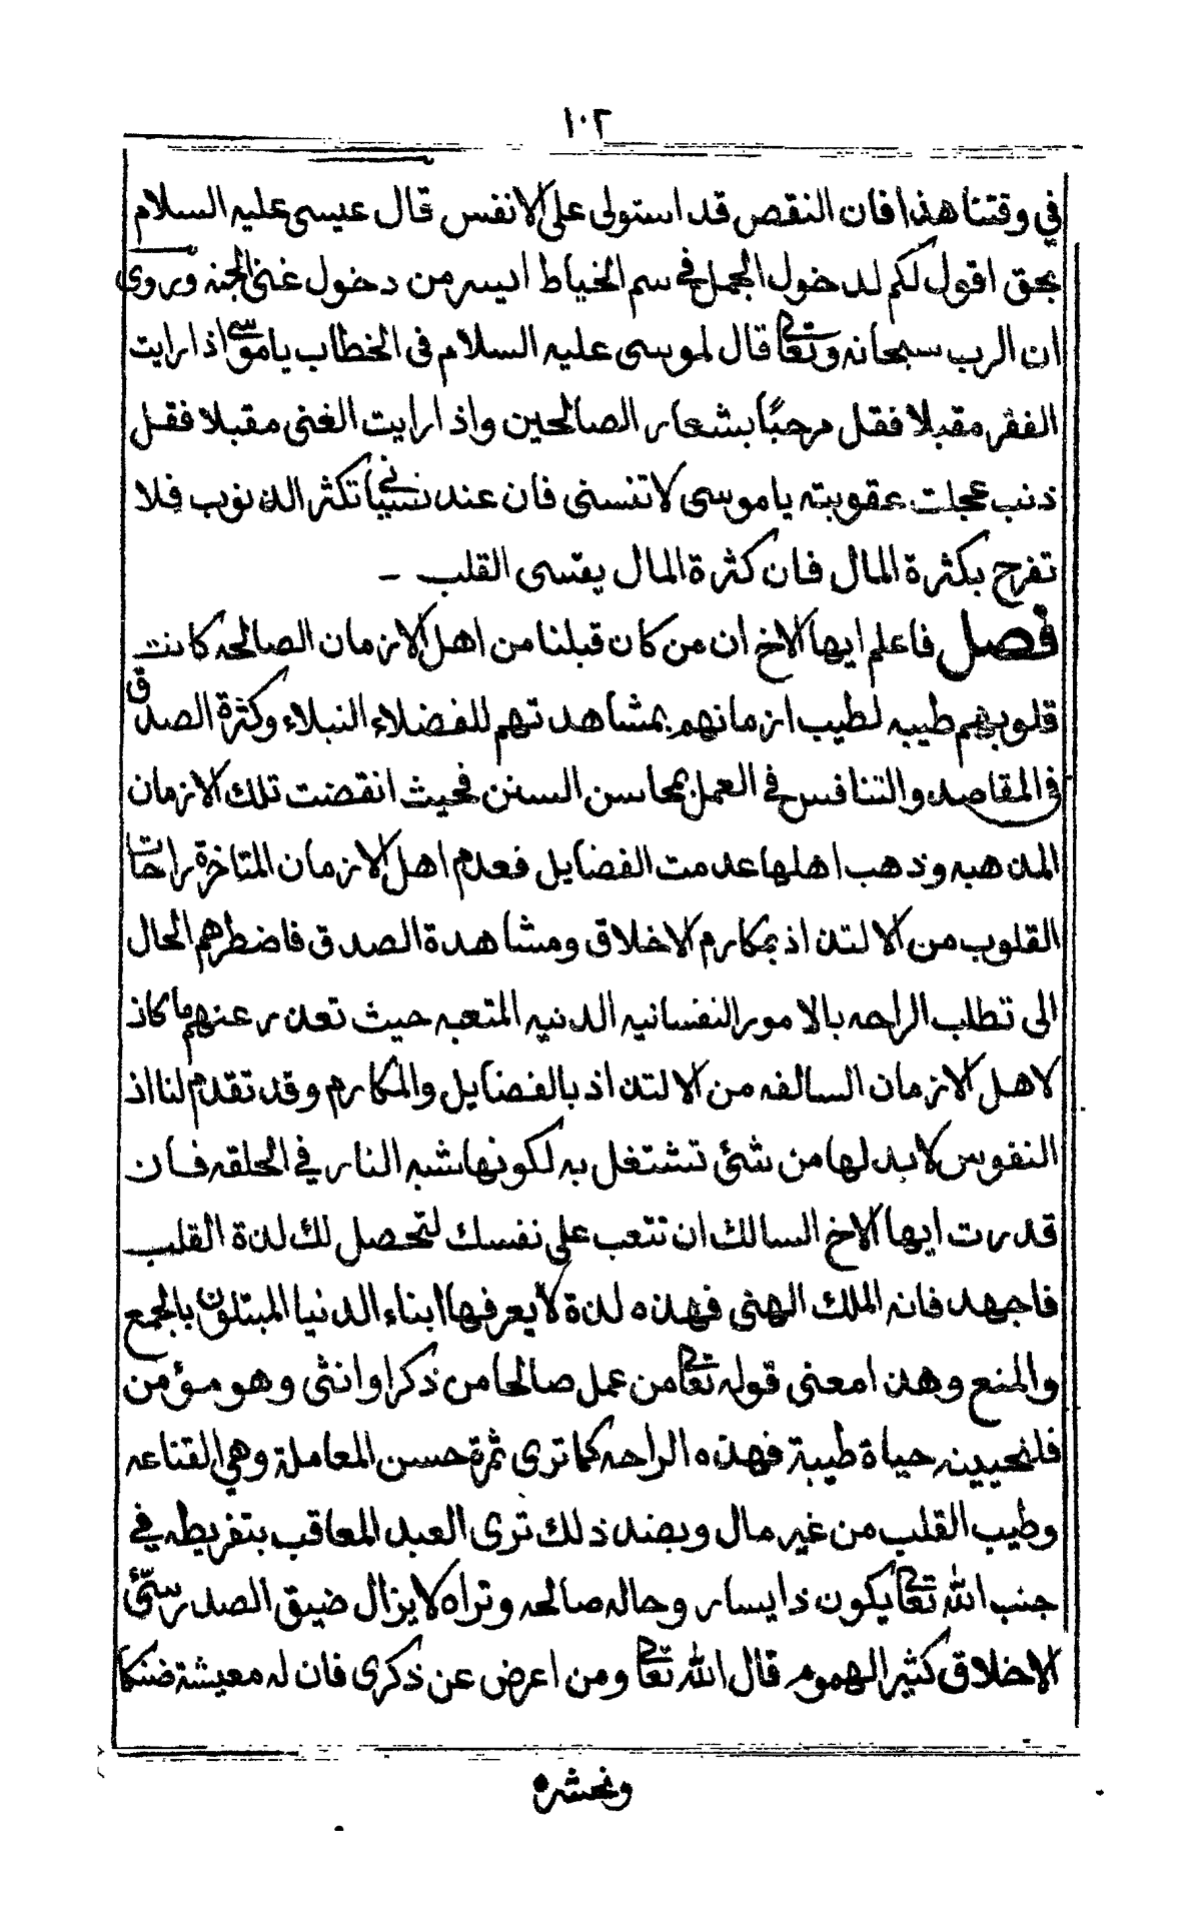 ١٠٢
في وقتنا هذا فان النقص قد استولى على الانفس قال عيسى عليه السلام
بحق اقول لكم لدخول الجمل في سم الخياط ايسر من دخول غني الجنه ويروى
ان الرب سبحانه وتعالى قال لموسى عليه السلام في الخطاب يا موسى اذا رايت
الفقر مقبلا فقل مرحبًا بشعار الصالحين واذا رايت الغنى مقبلا فقل
ذنب عجلت عقوبته يا موسى لا تنسنى فان عند نسياني تكثر الذنوب فلا
تفرح بكثرة المال فان كثرة المال يقسى القلب ـ
فصل فاعلم ايها الاخ ان من كان قبلنا من اهل الازمان الصالحه كانت
قلوبهم طيبه لطيب ازمانهم بمشاهدتهم للفضلاء النبلاء وكثرة الصدق
في المقاصد والتنافس في العمل بمحاسن السنن فحيث انقضت تلك الازمان
المذهبه وذهب اهلها عدمت الفضايل فعدم اهل الازمان المتاخرة راحات
القلوب من الالتذاذ بمكارم الاخلاق ومشاهدة الصدق فاضطرهم الحال
الى تطلب الراحه بالامور النفسانيه الدنيه المتعبه حيث تعذر عنهم ما كان
لاهل الازمان السالفه من الالتذاذ بالفضايل والمكارم وقد تقدم لنا اذ
النفوس لا بد لها من شئ تشتغل به لكونها شبه النار في الحلقه فان
قدرت ايها الاخ السالك ان تتعب على نفسك لتحصل لك لذة القلب
فاجهد فانه الملك الهنى فهذه لذة لا يعرفها ابناء الدنيا المبتلون بالجمع
والمنع وهذا معنى قوله تعالى من عمل صالحا من ذكر او انثى وهو مؤمن
فلنحيينه حياة طيبة فهذه الراحه كما ترى ثمرة حسن المعاملة وهي القناعه
وطيب القلب من غير مال وبضد ذلك ترى العبد المعاقب بتفريطه في
جنب الله تعالى يكون ذا يسار وحاله صالحه وتراه لا يزال ضيق الصدر سيّئ
الاخلاق كثير الهموم قال الله تعالى ومن اعرض عن ذكرى فان له معيشة ضنكا
ونحشره